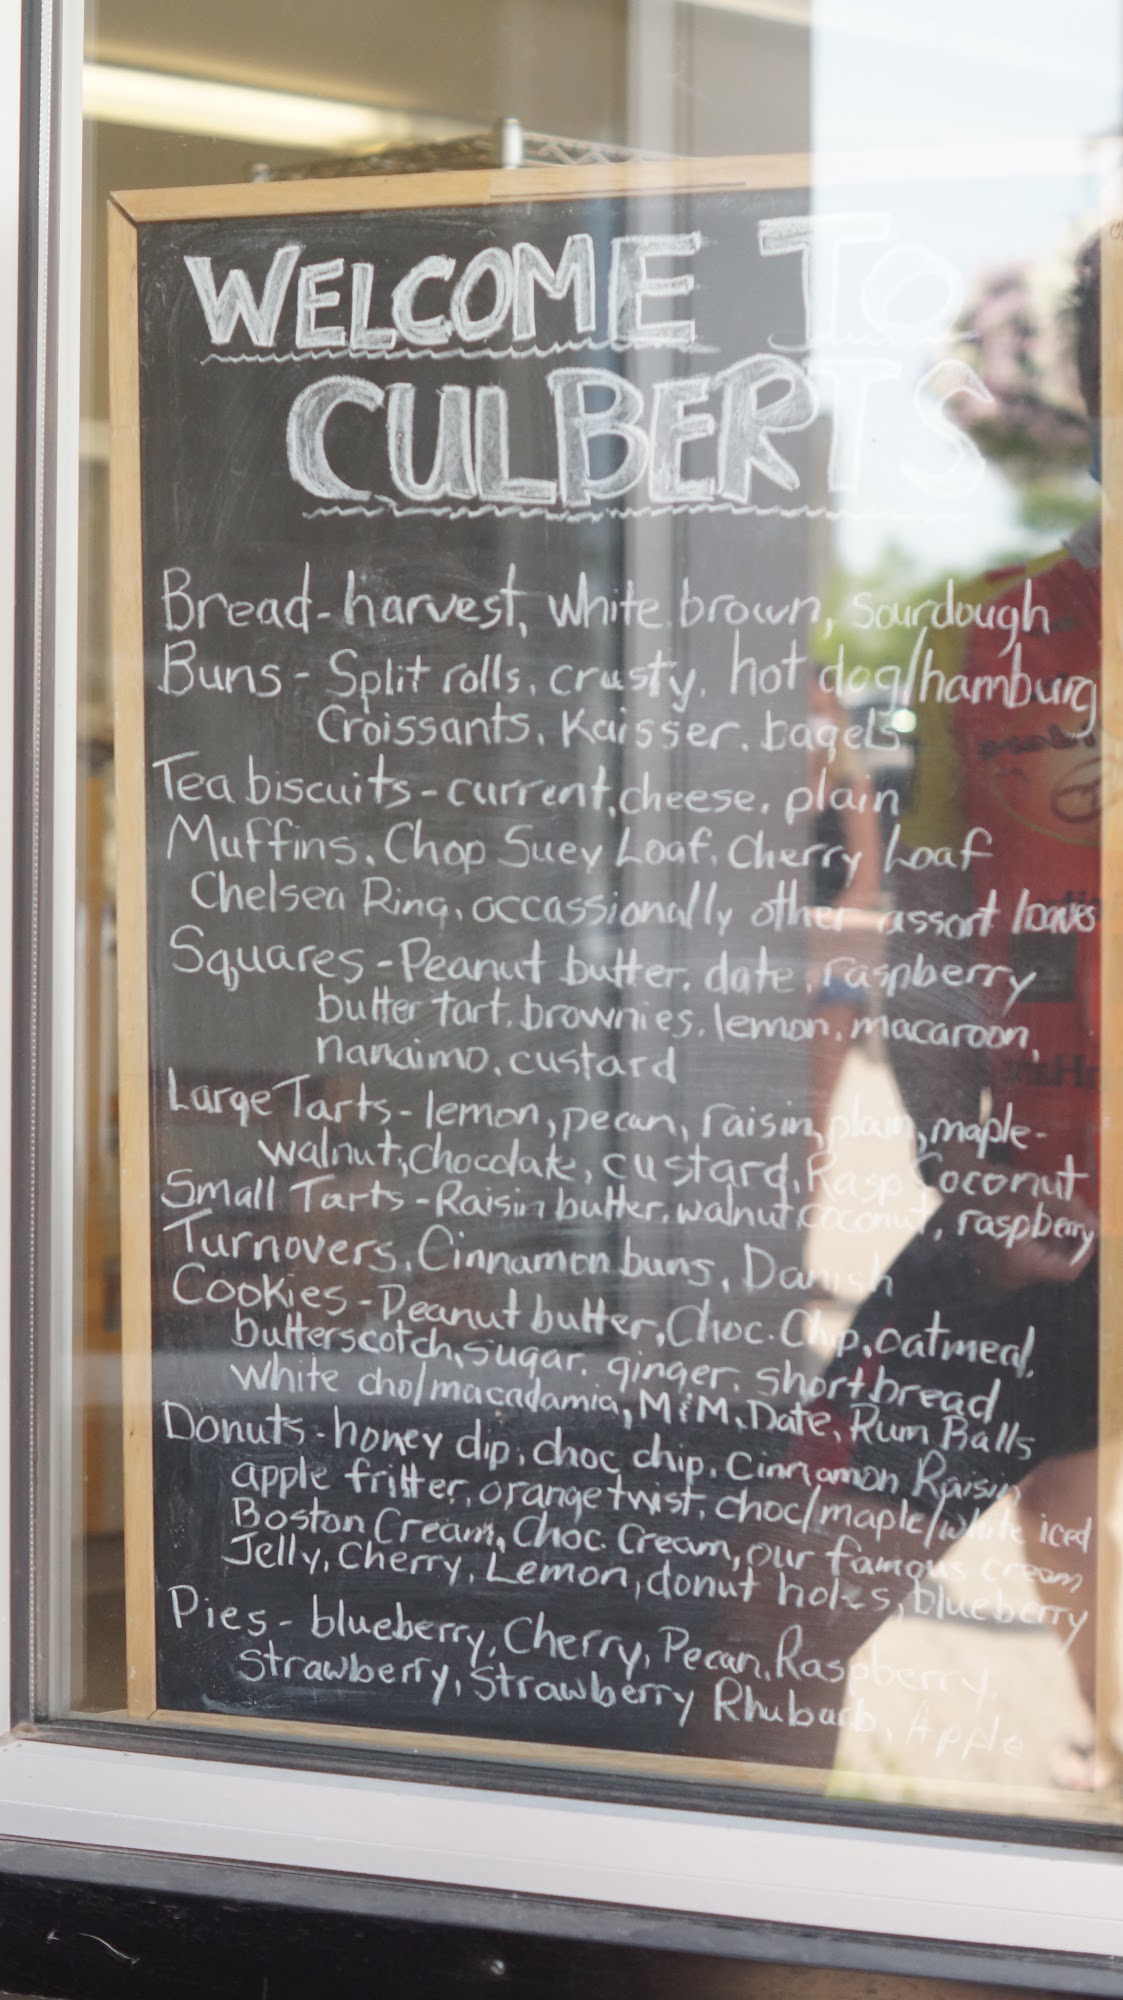 WELCOME TO
CULBERTS
Bread - harvest, white, brown, sourdough
Buns - Split rolls, crusty, hot dog/hamburg
Croissants, Kaisser, bagels
Tea biscuits - current, cheese, plain
Muffins, Chop Suey Loaf, Cherry Loaf
Chelsea Ring, occassionally other assort loaves
Squares - Peanut butter, date, raspberry
butter tart, brownies, lemon, macaroon,
nanaimo, custard
Large Tarts - lemon, pecan, raisin, plain, maple-
walnut, chocolate, custard, Rasp Coconut
Small Tarts - Raisin butter, walnut, coconut, raspberry
Turnovers, Cinnamon buns, Danish
Cookies - Peanut butter, Choc. Chip, oatmeal,
butterscotch, sugar, ginger, shortbread
white cho/macadamia, M&M, Date, Rum Balls
Donuts - honey dip, choc chip, Cinnamon Raisin
apple fritter, orange twist, choc/maple/white iced
Boston Cream, Choc. Cream, our famous cream
Jelly, Cherry, Lemon, donut holes, blueberry
Pies - blueberry, Cherry, Pecan, Raspberry,
Strawberry, Strawberry Rhubarb, Apple